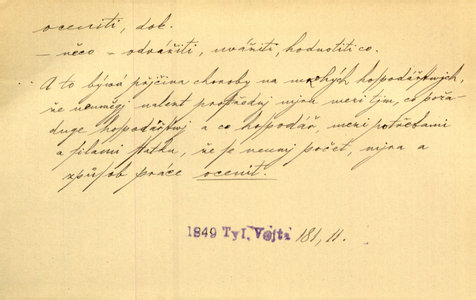 oceniti, dok.
– něco – odvážiti, uvážiti, hodnotiti co.
A to bývá příčina choroby na mnohých hospodářstvích,
že neumějí nalézt prostředný mezi tím, co požaduje
duge hospodářství a co hospodář, mezi potřebami
a silami statku, že je neumí počet, míra a
způsob práce ocenit.
1849 Tyl, Vojta 181, 11.